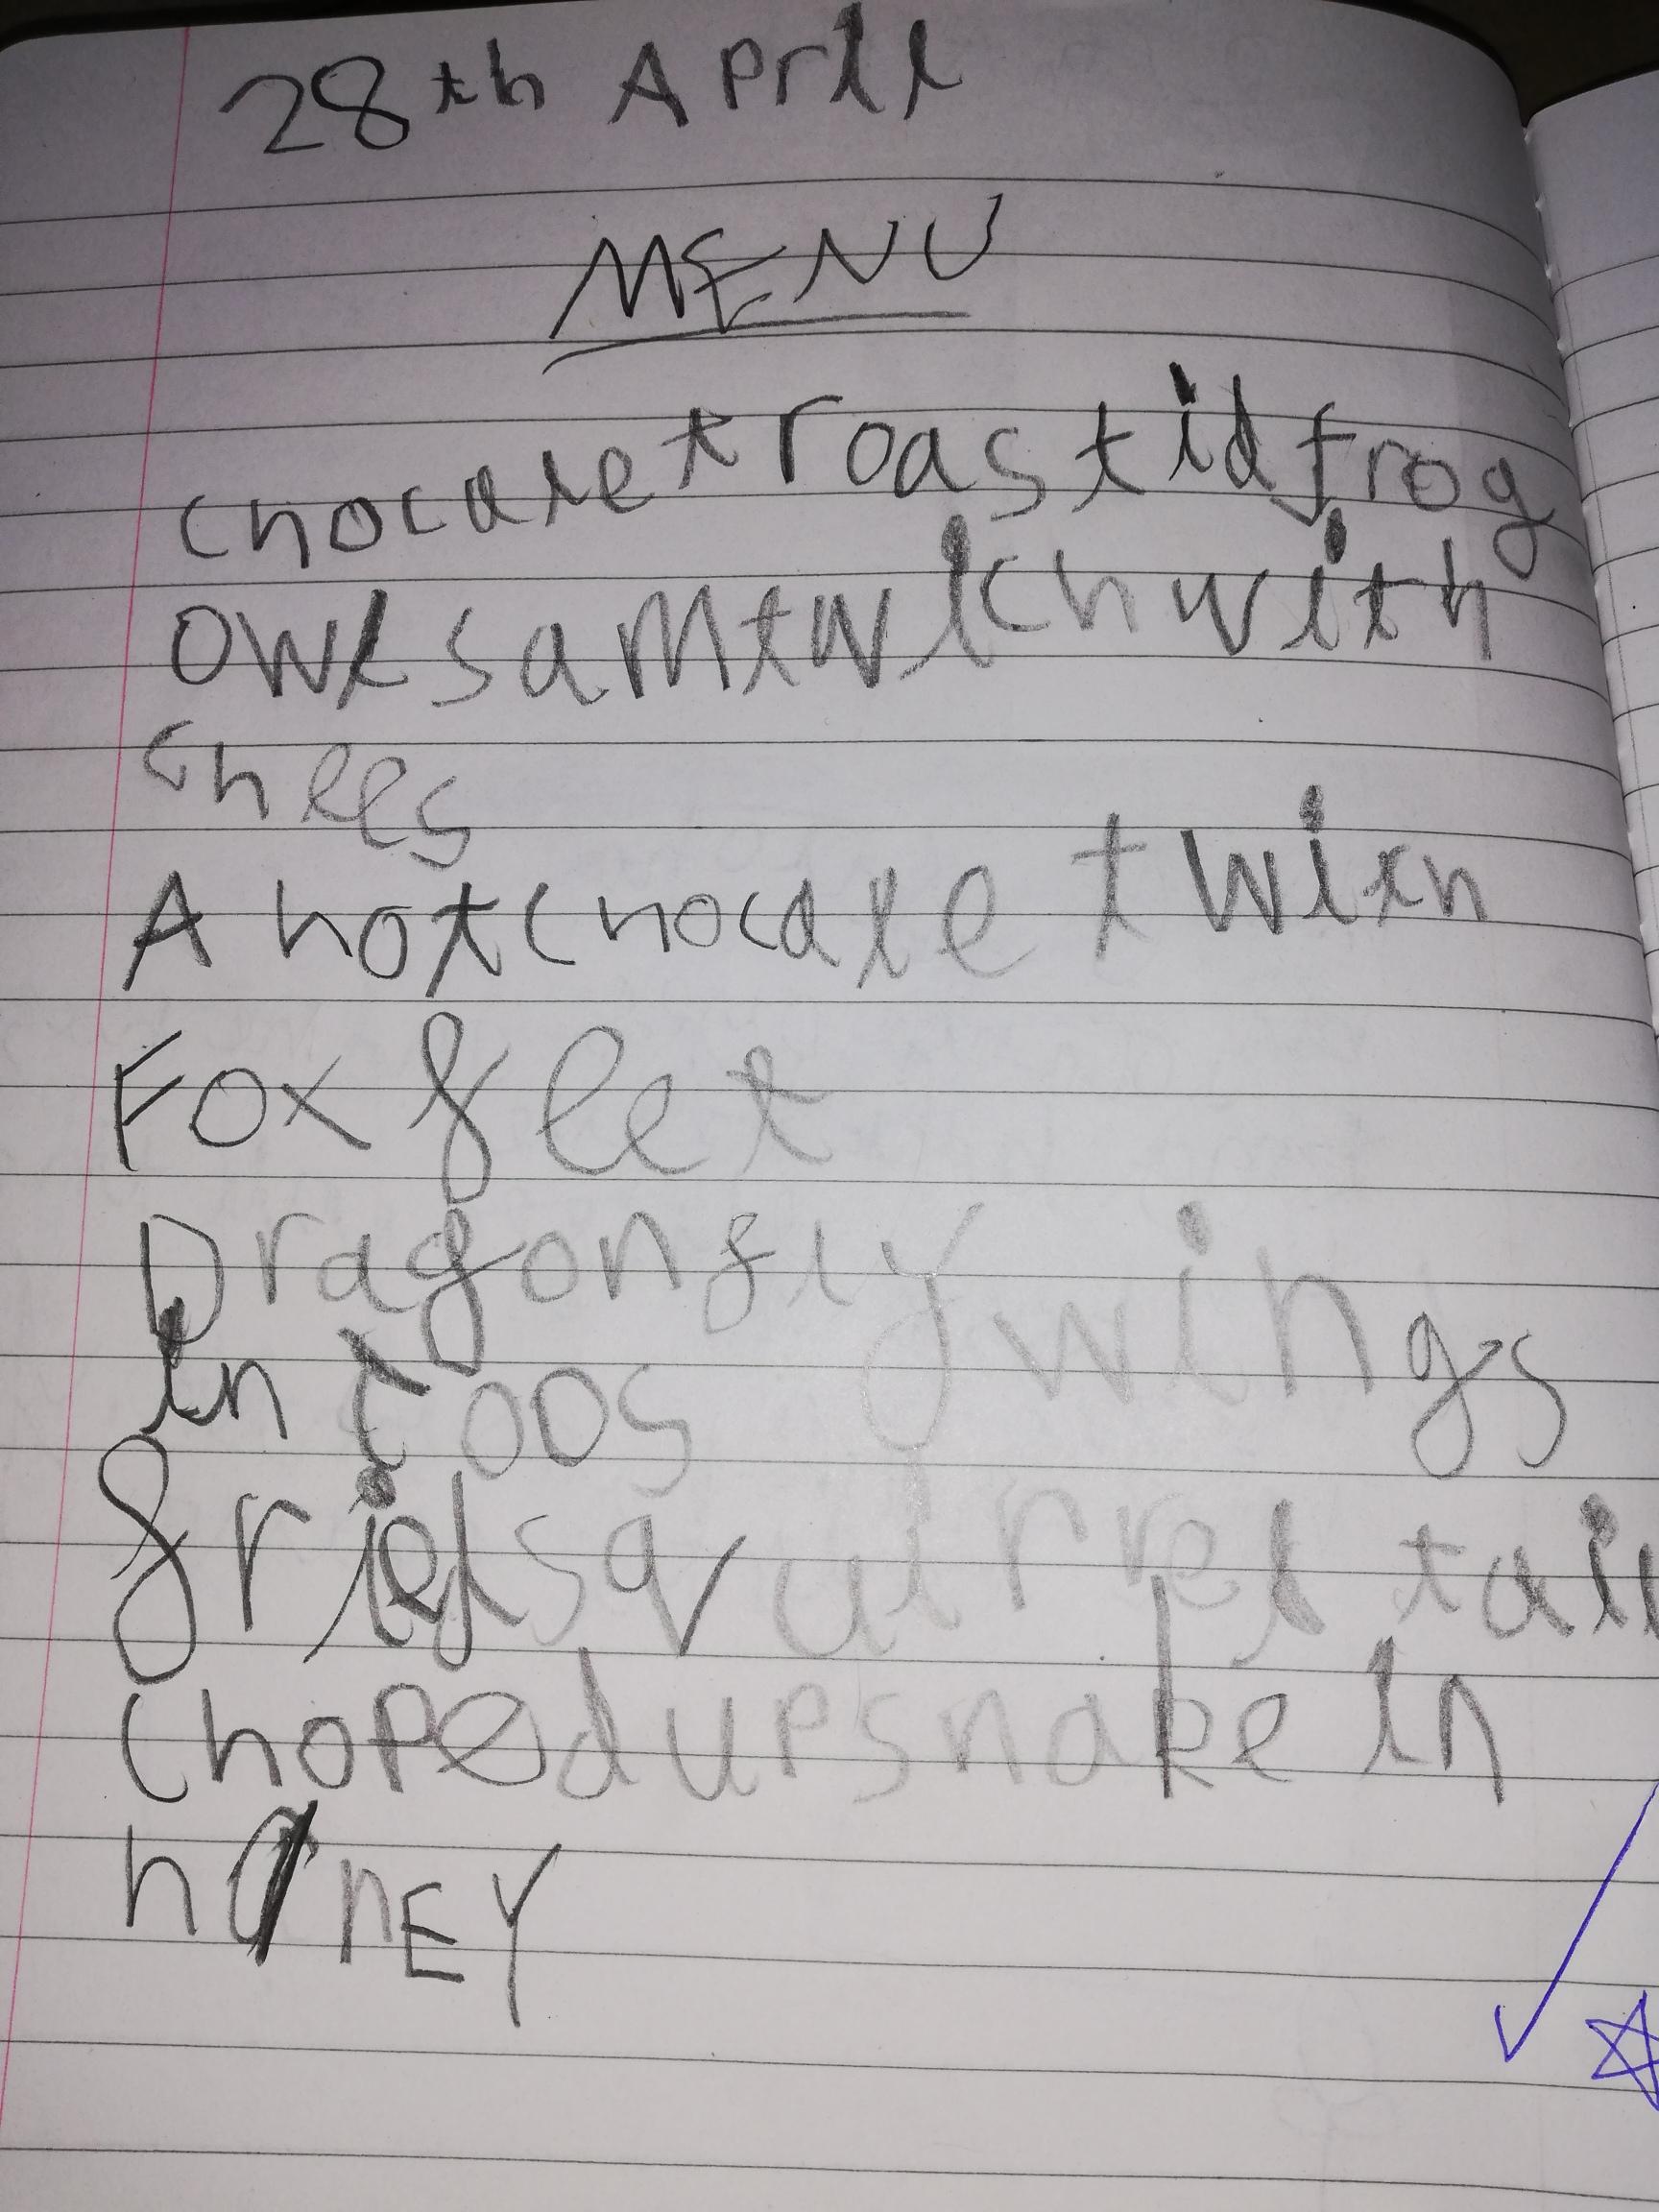 28th April
MENU
chocalet roastid frog
owl samtwich with
chees
A hot chocalet with
Fox feet
Dragonfly wings
in
fried squirrel tail
choped up snake in
honEY